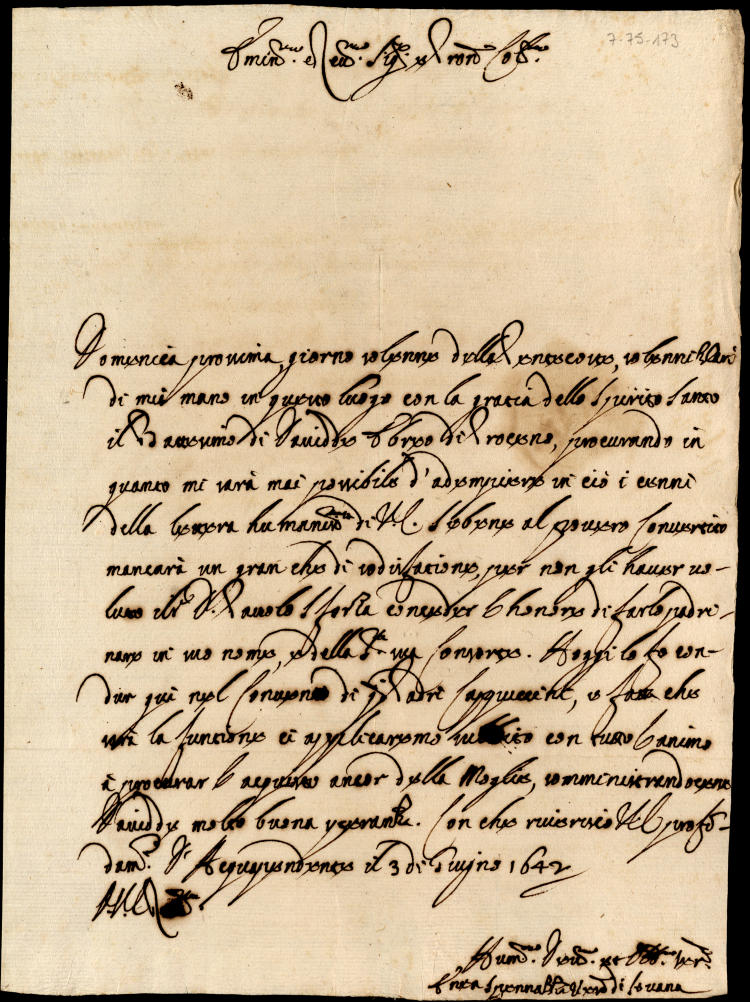 7-75-173
Emin.mo e Rev.mo Sig.r e Pron Col.mo
Domenica prossima giorno solenne della Pentecoste, solennizzarò
di mia mano in questo luogo con la gratia dello Spirito Santo
il Battesimo di Davidde Ebreo di Proceno, procurando in
quanto mi sarà mai possibile d'adempiere in ciò i cenni
della lettera humanissma di V.E. Sebene al povero Convertito
mancarà un gran che di sodisfatione, per non gli haver vo-
luto il Sr. D. Paolo Sforza conceder l'honore di farlo padri-
nare in suo nome, e della Sra sua Consorte. Hoggi lo fo con-
dur quì nel Convento di PP. Padri Cappuccini, e fatta che
sarà la funtione ci applicaremo subbito con tutto l'animo
à procurar l'acquisto ancor della Moglie, somministrandocene
Davidde molto buona speranza. Con che riverisco V.E. profon-
dam.te Di Acquapendente il 3 di Giugno 1642
Hum.mo Dev.mo et Obb.mo ser.re
Enea Spennazzi Vesco di Sovana